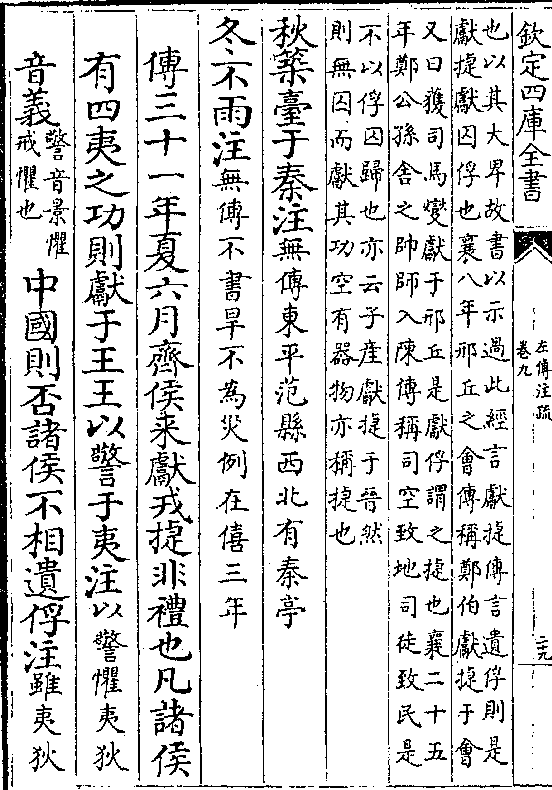 欽定四庫全書
左傳注疏
卷九
二九
也以其大卑故書以示過此經言獻捷傳言遺俘則是
獻捷獻囚俘也襄八年邢丘之會傳稱鄭伯獻捷于會
又曰獲司馬燮獻于邢丘是獻俘謂之捷也襄二十五
年鄭公孫舍之帥師入陳傳稱司空致地司徒致民是
不以俘囚歸也亦云子產獻捷于晉然
則無囚而獻其功空有器物亦稱捷也
秋築臺于秦注無傳東平范縣西北有秦亭
冬不雨注無傳不書旱不為災例在僖三年
傳三十一年夏六月齊侯來獻戎捷非禮也凡諸侯
有四夷之功則獻于王王以警于夷注以警懼夷狄
音義警音景懼
戒懼也
中國則否諸侯不相遺俘注雖夷狄